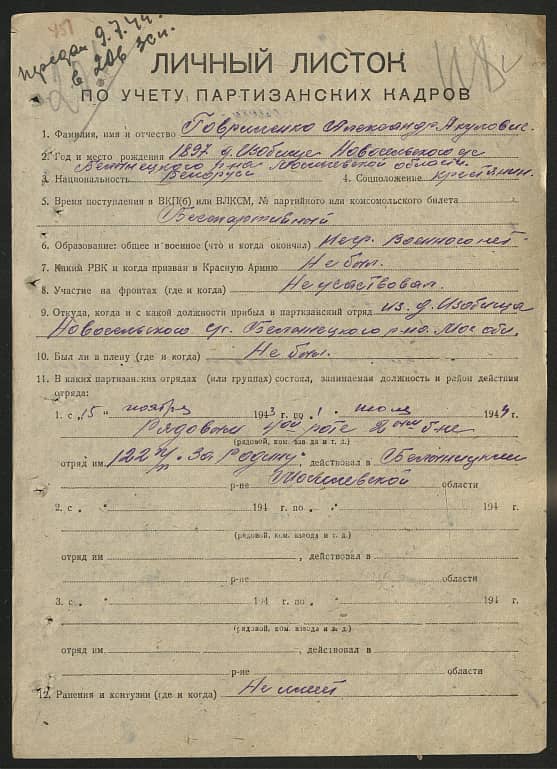 451
Передан 9.7.44г.
в 206 зсп.
ЛИЧНЫЙ ЛИСТОК
ПО УЧЕТУ ПАРТИЗАНСКИХ КАДРОВ
1. Фамилия, имя и отчество Гавриленко Александр Акулович.
2. Год и место рождения 1897 д. Изобище Новосельского с/с
Белыницкого р-на Могилевской области
3. Национальность Белорус 4. Соцположение крестьянин.
5. Время поступления в ВКП(б) или ВЛКСМ, № партийного или комсомольского билета
Беспартийный
6. Образование: общее и военное (что и когда окончил) Негр. Военного нет
7. Какий РВК и когда призван в Красную Армию Не был.
8. Участие на фронтах (где и когда) Не участвовал.
9. Откуда, когда и с какой должности прибыл в партизанский отряд из д. Изобища
Новосельского с/с. Белыницкого р-на. Мог. обл.
10. Был ли в плену (где и когда) Не был.
11. В каких партизанских отрядах (или группах) состоял, занимаемая должность и район действия
отряда:
1. с „15 " ноября 1943 г. по „1 " июля 1944 г.
Рядовым роте б-не
(рядовой, ком. взвода и т. д.)
отряд им. 122 п/п. За Родину, действовал в Белыницком
р-не Могилевской области
2. с „ " 194 г. по „ " 194 г.
(рядовой, ком. взвода и т. д.)
отряд им , действовал в
р-не области
3. с „ " 194 г. по „ " 194 г.
(рядовой, ком. взвода и т. д.)
отряд им , действовал в
р-не области
12. Ранения и контузии (где и когда) Не имеет